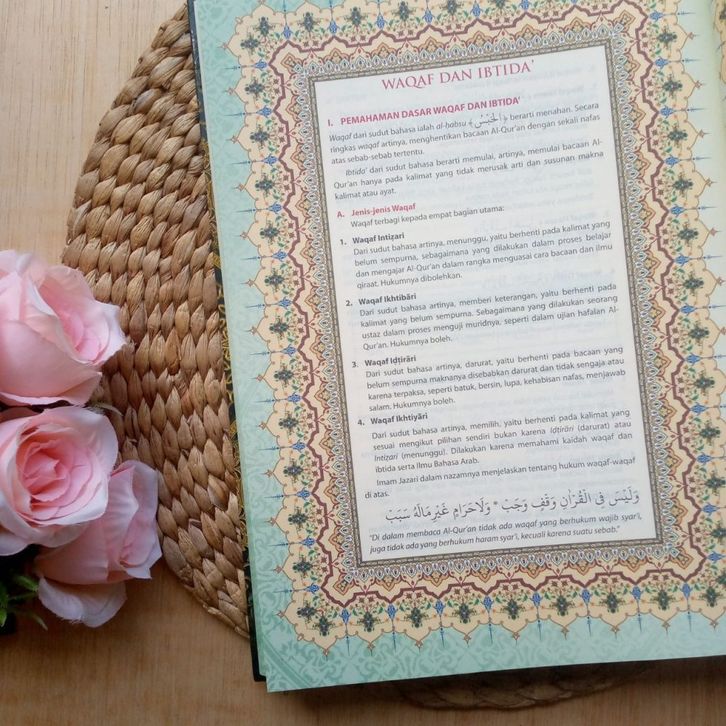 WAQAF DAN IBTIDA'
I. PEMAHAMAN DASAR WAQAF DAN IBTIDA'
Waqaf dari sudut bahasa ialah al-habsu ﴿الْحَبْسُ﴾ berarti menahan. Secara
ringkas waqaf artinya, menghentikan bacaan Al-Qur'an dengan sekali nafas
atas sebab-sebab tertentu.
Ibtida' dari sudut bahasa berarti memulai, artinya, memulai bacaan Al-
Qur'an hanya pada kalimat yang tidak merusak arti dan susunan makna
kalimat atau ayat.
A. Jenis-jenis Waqaf
Waqaf terbagi kepada empat bagian utama:
1. Waqaf Intiẓari
Dari sudut bahasa artinya, menunggu, yaitu berhenti pada kalimat yang
belum sempurna, sebagaimana yang dilakukan dalam proses belajar
dan mengajar Al-Qur'an dalam rangka menguasai cara bacaan dan ilmu
qiraat. Hukumnya dibolehkan.
2. Waqaf Ikhtibāri
Dari sudut bahasa artinya, memberi keterangan, yaitu berhenti pada
kalimat yang belum sempurna. Sebagaimana yang dilakukan seorang
ustaz dalam proses menguji muridnya, seperti dalam ujian hafalan Al-
Qur'an. Hukumnya boleh.
3. Waqaf Iḍṭirāri
Dari sudut bahasa artinya, darurat, yaitu berhenti pada bacaan yang
belum sempurna maknanya disebabkan darurat dan tidak sengaja atau
karena terpaksa, seperti batuk, bersin, lupa, kehabisan nafas, menjawab
salam. Hukumnya boleh.
4. Waqaf Ikhtiyāri
Dari sudut bahasa artinya, memilih, yaitu berhenti pada kalimat yang
sesuai mengikut pilihan sendiri bukan karena Iḍṭirāri (darurat) atau
Intiẓari (menunggu). Dilakukan karena memahami kaidah waqaf dan
ibtida serta Ilmu Bahasa Arab.
Imam Jazari dalam nazamnya menjelaskan tentang hukum waqaf-waqaf
di atas.
وَلَيْسَ فِى الْقُرْاٰنِ وَقْفٍ وَجَبْ * وَلَاحَرَامٍ غَيْرِ مَالَهُ سَبَبْ
"Di dalam membaca Al-Qur'an tidak ada waqaf yang berhukum wajib syar'i,
juga tidak ada yang berhukum haram syar'i, kecuali karena suatu sebab."